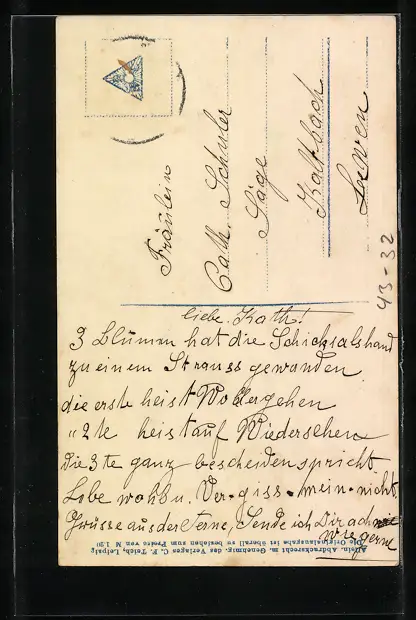 Fräulein
Cath. Schuler
Säge
Kaltbach
Lauerz
43-32
liebe Kath!
3 Blumen hat die Schicksalshand
zu einem Strauss gewunden
die erste heist Wollergehen
"2te heist auf Wiedersehen
die 3te ganz bescheiden spricht
Lebe wohl u. Ver-giss-mein-nicht.
Grüsse aus der Ferne, Sende ich Dir ach wie
wie gerne
Allein. Abdrucksrecht m. Genehmig. des Verlages C. F. Teich, Leipzig
Die Originalausgabe ist überall zu beziehen zum Preise von M 1.20